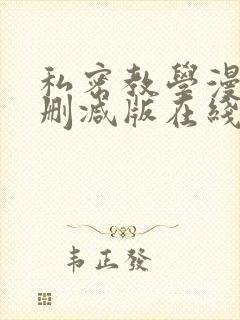 私密教學漫
刪減版在綫
韦正發